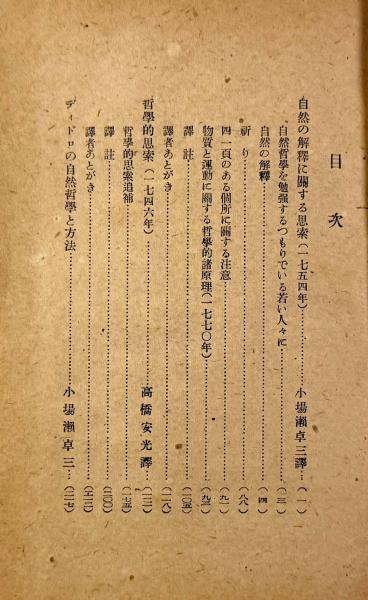 目次
自然の解釋に關する思索(一七五四年)……小場瀬卓三譯…(一)
自然哲學を勉强するつもりでいる若い人々に……(三)
自然の解釋……(四)
祈り……(八八)
四一頁のある個所に關する注意……(九一)
物質と運動に關する哲學的諸原理(一七七〇年)……(九三)
譯註……(一〇五)
譯者あとがき……(一一八)
哲學的思索(一七四六年)……高橋安光譯…(一三一)
哲學的思索追補……(一七五)
譯註……(二〇〇)
譯者あとがき……
ディドロの自然哲學と方法……小場瀬卓三…(二一七)